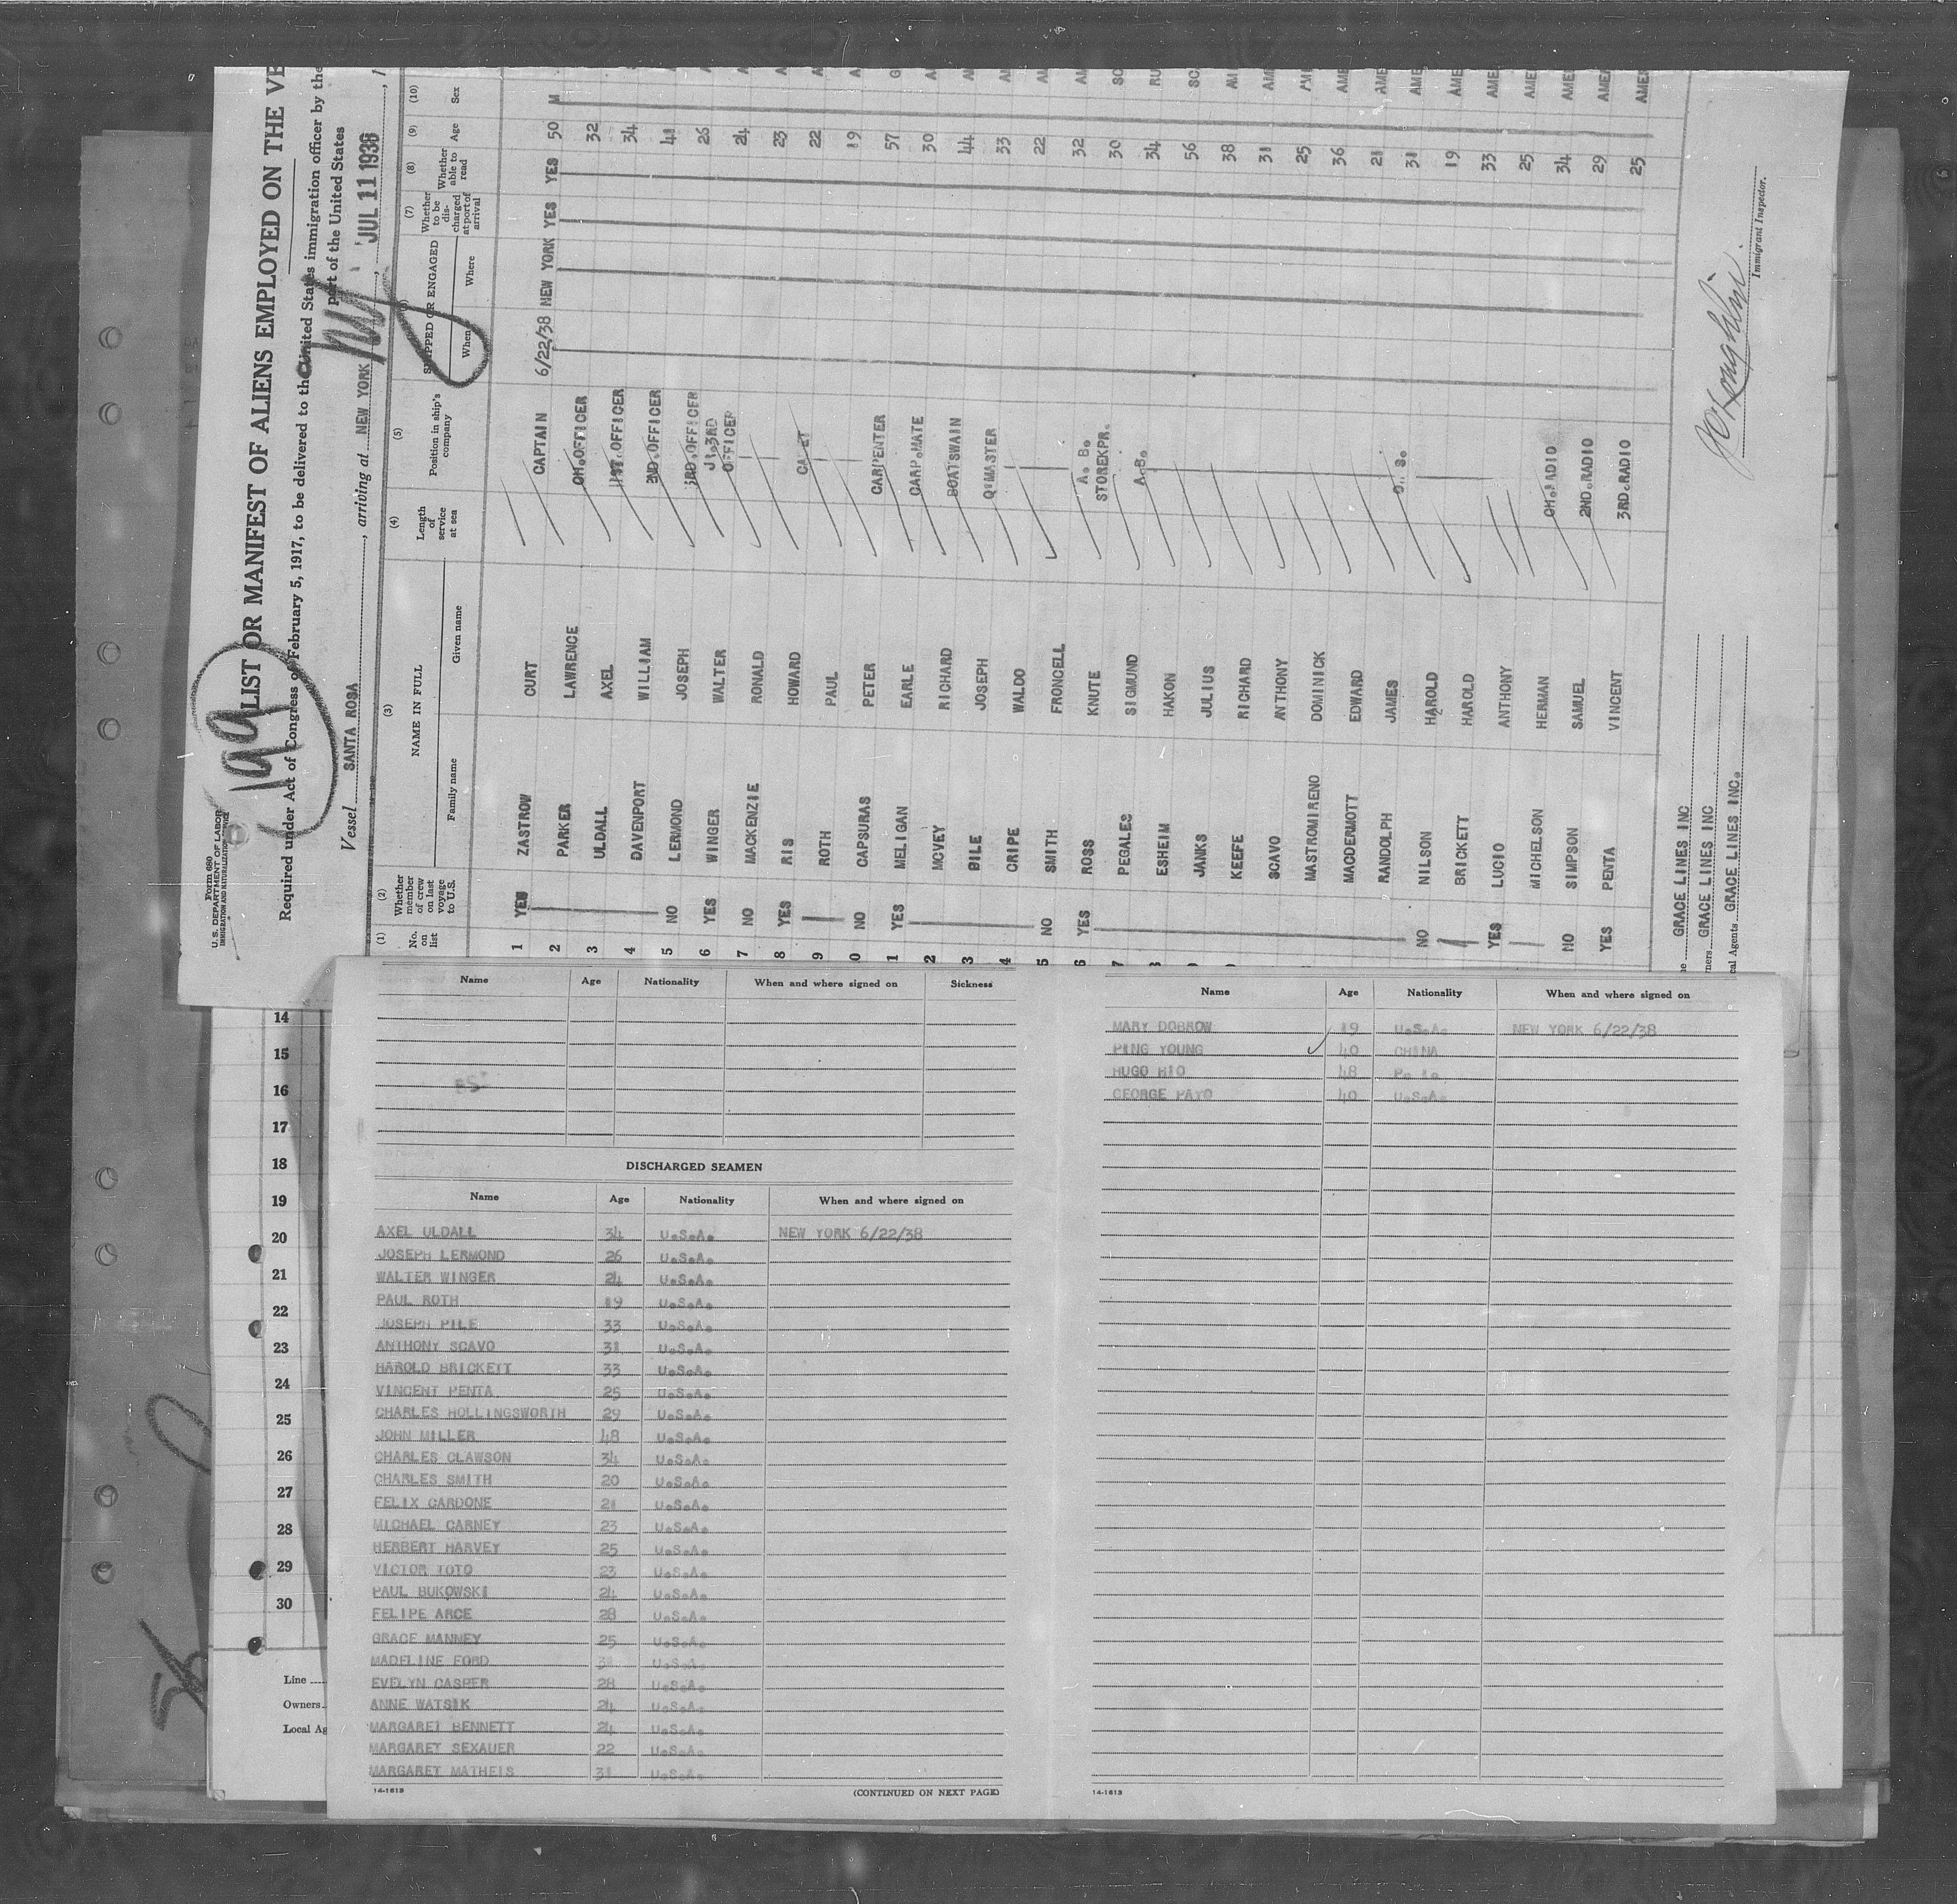 Form 680
U. S. DEPARTMENT OF LABOR
IMMIGRATION AND NATURALIZATION SERVICE
199
LIST OR MANIFEST OF ALIENS EMPLOYED ON THE VE
Required under Act of Congress of February 5, 1917, to be delivered to the United States immigration officer by the
port of the United States
Vessel SANTA ROSA, arriving at NEW YORK, JUL 11 1938, 1
(1) (2) (3) (4) (5) (6) (7) (8) (9) (10)
No. on list Whether member of crew on last voyage to U.S. NAME IN FULL Length of service at sea Position in ship's company SHIPPED OR ENGAGED Whether to be discharged at port of arrival Whether able to read Age Sex
Family name Given name When Where
1 YES ZASTROW CURT CAPTAIN 6/22/38 NEW YORK YES YES 50 M
2 PARKER LAWRENCE CH.OFFICER 32
3 ULDALL AXEL 1ST.OFFICER 34
4 DAVENPORT WILLIAM 2ND.OFFICER 41
5 NO LERMOND JOSEPH 3RD.OFFICER 26
6 YES WINGER WALTER J1.3RD OFFICER 24
7 NO MACKENZIE RONALD 23
8 YES RIS HOWARD CADET 22
9 ROTH PAUL 19
0 NO CAPSURAS PETER CARPENTER 57 G
1 YES MELIGAN EARLE CARP.MATE 30
2 MCVEY RICHARD BOATSWAIN 44
3 BILE JOSEPH Q'MASTER 33
4 CRIPE WALDO 22
5 NO SMITH FRONCELL A. B. 32 AM
6 YES ROSS KNUTE STOREKPR. 30 SC
7 PEGALES SIGMUND A.B. 34 RU
8 ESHEIM HAKON 56 SC
JANKS JULIUS 38 AM
KEEFE RICHARD 31 AME
SCAVO ANTHONY 25 AME
MASTROMIRENO DOMINICK 36 AME
MACDERMOTT EDWARD 21 AME
RANDOLPH JAMES O. S. 31 AME
NO NILSON HAROLD 19 AME
BRICKETT HAROLD 33 AME
YES LUCIO ANTHONY 25 AME
MICHELSON HERMAN CH.RADIO 34 AME
NO SIMPSON SAMUEL 2ND.RADIO 29 AMER
YES PENTA VINCENT 3RD.RADIO 25 AMER
GRACE LINES INC
ners GRACE LINES INC
cal Agents GRACE LINES INC.
Immigrant Inspector.
14
15
16
17
18
19
20
21
22
23
24
25
26
27
28
29
30
Line
Owners
Local Ag
Name Age Nationality When and where signed on Sickness
DISCHARGED SEAMEN
Name Age Nationality When and where signed on
AXEL ULDALL 34 U.S.A. NEW YORK 6/22/38
JOSEPH LERMOND 26 U.S.A.
WALTER WINGER 24 U.S.A.
PAUL ROTH 19 U.S.A.
JOSEPH PILE 33 U.S.A.
ANTHONY SCAVO 31 U.S.A.
HAROLD BRICKETT 33 U.S.A.
VINCENT PENTA 25 U.S.A.
CHARLES HOLLINGSWORTH 29 U.S.A.
JOHN MILLER 48 U.S.A.
CHARLES CLAWSON 34 U.S.A.
CHARLES SMITH 20 U.S.A.
FELIX CARDONE 21 U.S.A.
MICHAEL CARNEY 23 U.S.A.
HERBERT HARVEY 25 U.S.A.
VICTOR TOTO 23 U.S.A.
PAUL BUKOWSKI 24 U.S.A.
FELIPE ARCE 28 U.S.A.
GRACE MANNEY 25 U.S.A.
MADELINE FORD 31 U.S.A.
EVELYN CASPER 28 U.S.A.
ANNE WATSIK 24 U.S.A.
MARGARET BENNETT 24 U.S.A.
MARGARET SEXAUER 22 U.S.A.
MARGARET MATHEIS 31 U.S.A.
14-1613 (CONTINUED ON NEXT PAGE)
Name Age Nationality When and where signed on
MARY DOBROW 19 U.S.A. NEW YORK 6/22/38
PING YOUNG 40 CHINA
HUGO RIO 48 P. I.
GEORGE PAYO 40 U.S.A.
14-1613